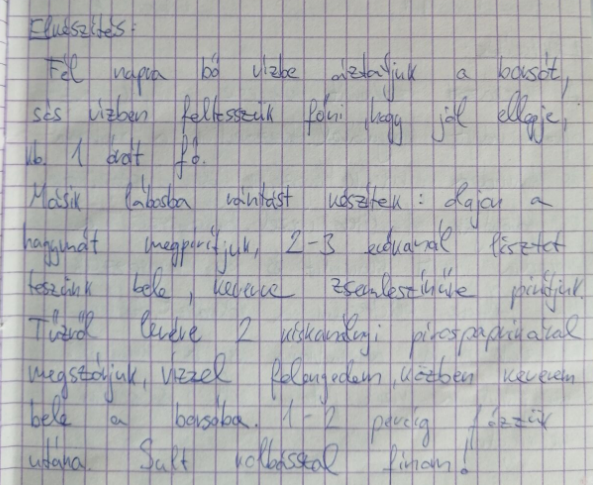 Elkészítés:
Fél napra bő vízbe áztatjuk a borsót,
sós vízben feltesszük főni, hogy jól ellepje,
kb. 1 órát fő.
Másik lábosba rántást készítek: olajon a
hagymát megpirítjuk, 2-3 evőkanál lisztet
teszünk bele, keverve zsemleszínűre pirítjuk.
Tűzről levéve 2 kiskanálnyi pirospaprikával
megszórjuk, vízzel felengedem, közben keverem
bele a borsóba. 1-2 percig főzzük
utána. Sült kolbásszal finom!